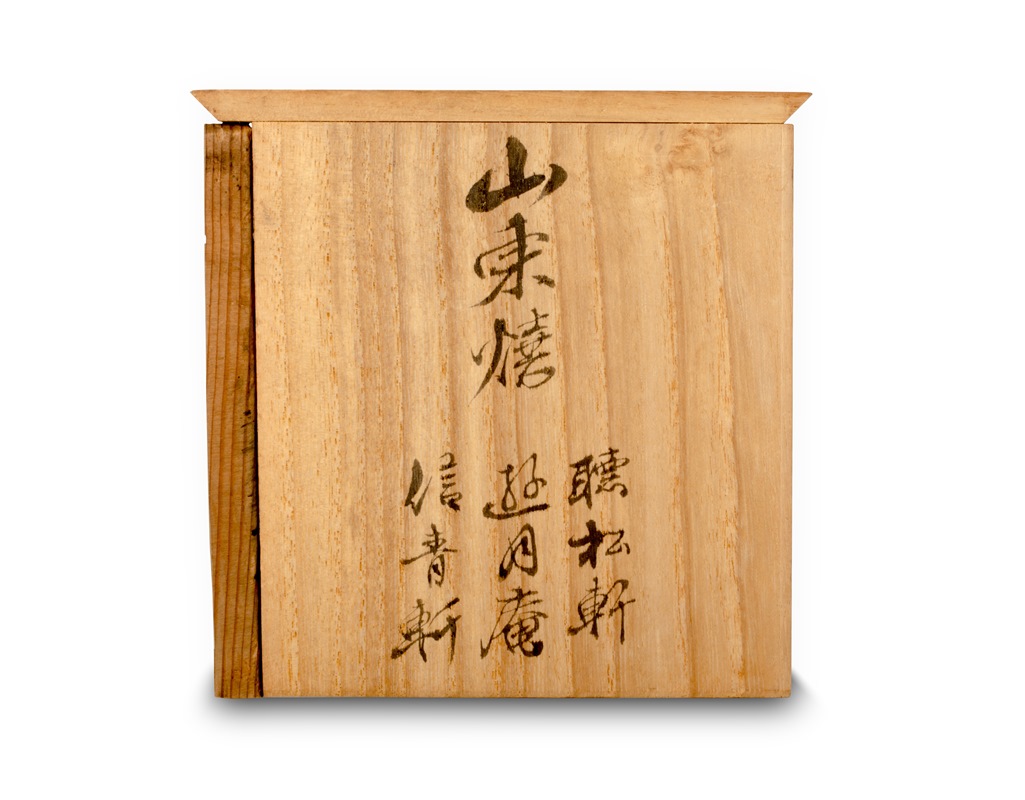 山東燒
聴松軒
遊月庵
信青軒